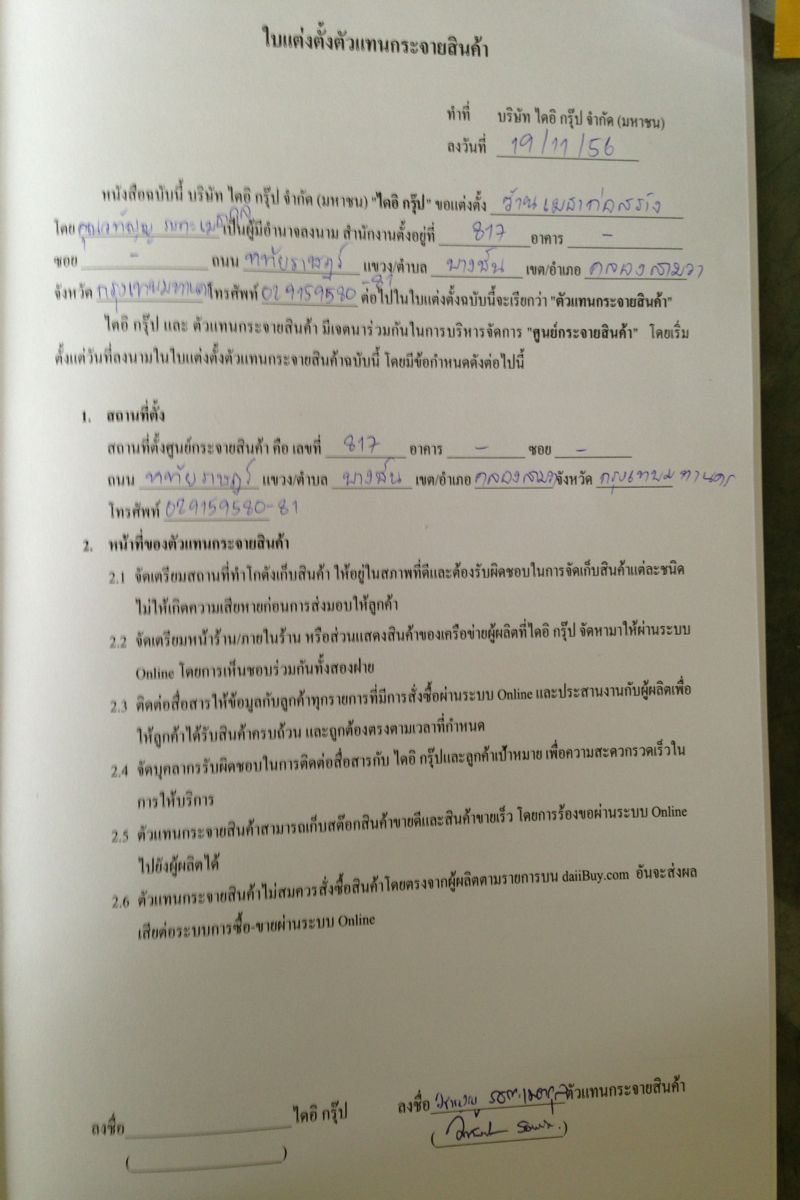 ใบแต่งตั้งตัวแทนกระจายสินค้า
ทำที่ บริษัท ไดอิ กรุ๊ป จำกัด (มหาชน)
ลงวันที่ 19/11/56
หนังสือฉบับนี้ บริษัท ไดอิ กรุ๊ป จำกัด (มหาชน) "ไดอิ กรุ๊ป" ขอแต่งตั้ง ร้านเมธาก่อสร้าง
โดย เป็นผู้มีอำนาจลงนาม สำนักงานตั้งอยู่ที่ 817 อาคาร -
ซอย - ถนน หทัยราษฎร์ แขวง/ตำบล บางชัน เขต/อำเภอ คลองสามวา
จังหวัด กรุงเทพมหานคร โทรศัพท์ 029159580-81 ต่อไปในใบแต่งตั้งฉบับนี้จะเรียกว่า "ตัวแทนกระจายสินค้า"
ไดอิ กรุ๊ป และ ตัวแทนกระจายสินค้า มีเจตนาร่วมกันในการบริหารจัดการ "ศูนย์กระจายสินค้า" โดยเริ่ม
ตั้งแต่วันที่ลงนามในใบแต่งตั้งตัวแทนกระจายสินค้าฉบับนี้ โดยมีข้อกำหนดังต่อไปนี้
1. สถานที่ตั้ง
สถานที่ตั้งศูนย์กระจายสินค้า คือ เลขที่ 817 อาคาร - ซอย -
ถนน หทัยราษฎร์ แขวง/ตำบล บางชัน เขต/อำเภอ คลองสามวา จังหวัด กรุงเทพมหานคร
โทรศัพท์ 029159580-81
2. หน้าที่ของตัวแทนกระจายสินค้า
2.1 จัดเตรียมสถานที่ทำโกดังเก็บสินค้า ให้อยู่ในสภาพที่ดีและต้องรับผิดชอบในการจัดเก็บสินค้าแต่ละชนิด
ไม่ให้เกิดความเสียหายก่อนการส่งมอบให้ลูกค้า
2.2 จัดเตรียมหน้าร้าน/ภายในร้าน หรือส่วนแสดงสินค้าของเครือข่ายผู้ผลิตที่ไดอิ กรุ๊ป จัดหามาให้ผ่านระบบ
Online โดยการเห็นชอบร่วมกันทั้งสองฝ่าย
2.3 ติดต่อสื่อสารให้ข้อมูลกับลูกค้าทุกรายการที่มีการสั่งซื้อผ่านระบบ Online และประสานงานกับผู้ผลิตเพื่อ
ให้ลูกค้าได้รับสินค้าครบถ้วน และถูกต้องตรงตามเวลาที่กำหนด
2.4 จัดบุคลากรรับผิดชอบในการติดต่อสื่อสารกับ ไดอิ กรุ๊ปและลูกค้าเป้าหมาย เพื่อความสะดวกรวดเร็วใน
การให้บริการ
2.5 ตัวแทนกระจายสินค้าสามารถเก็บสต๊อกสินค้าขายดีและสินค้าขายเร็ว โดยการร้องขอผ่านระบบ Online
ไปยังผู้ผลิตได้
2.6 ตัวแทนกระจายสินค้าไม่สมควรสั่งซื้อสินค้าโดยตรงจากผู้ผลิตตามรายการบน daiiBuy.com อันจะส่งผล
เสียต่อระบบการซื้อ-ขายผ่านระบบ Online
ลงชื่อ ไดอิ กรุ๊ป
ลงชื่อ ตัวแทนกระจายสินค้า